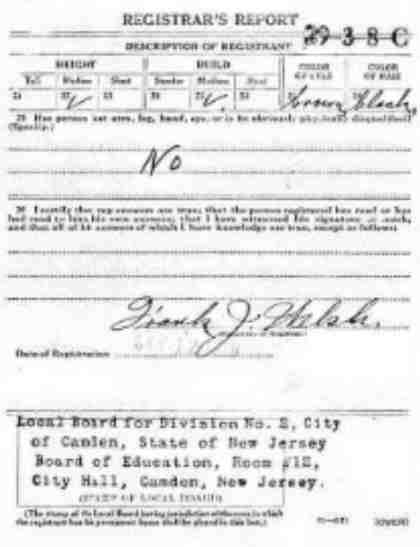 REGISTRAR'S REPORT
29-3-8-C
DESCRIPTION OF REGISTRANT
HEIGHT BUILD COLOR OF EYES COLOR OF HAIR
Tall Medium Short Slender Medium Stout
Brown Black
29 Has person lost arm, leg, hand, eye, or is he obviously physically disqualified?
(Specify.)
No
30 I certify that my answers are true; that the person registered has read or has
had read to him his own answers; that I have witnessed his signature or mark,
and that all of his answers of which I have knowledge are true, except as follows:
Frank J.
Date of Registration
Local Board for Division No. 2, City
of Camden, State of New Jersey
Board of Education, Room #12,
City Hall, Camden, New Jersey.
(STAMP OF LOCAL BOARD)
(The stamp of the Local Board having jurisdiction of the area in which
the registrant has his permanent home shall be placed in this box.)
(OVER)